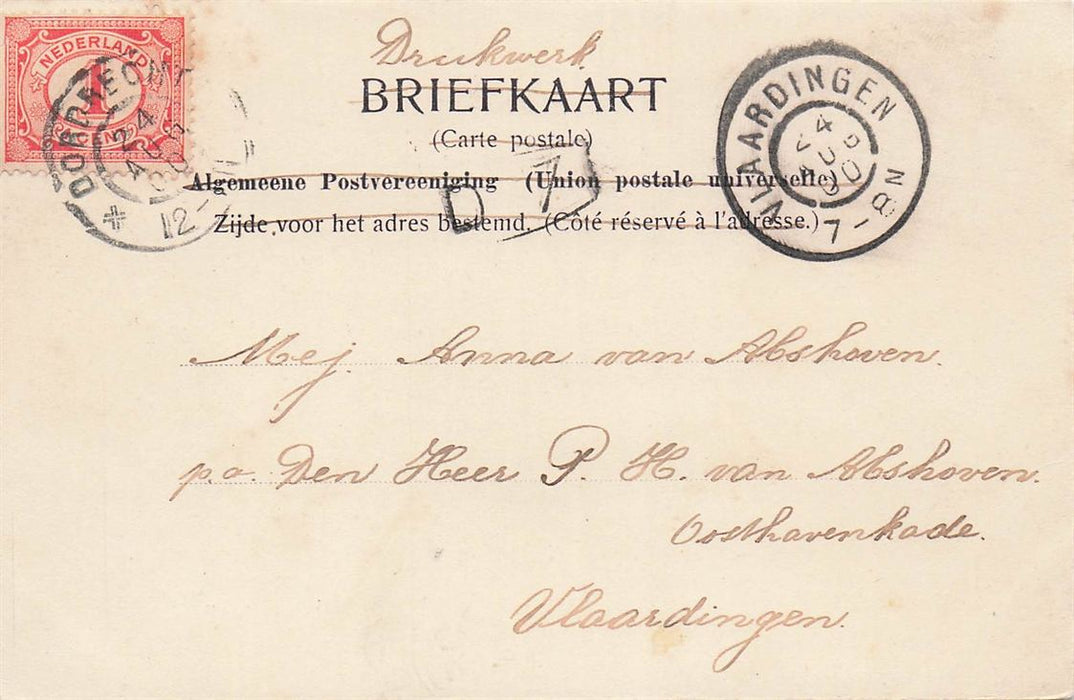 NEDERLAND
1
CENT
DORDRECHT
24
AUG
00
12-
Drukwerk
BRIEFKAART
(Carte postale)
Algemeene Postvereeniging (Union postale universelle)
Zijde voor het adres bestemd. (Côté réservé à l'adresse.)
D 1
VLAARDINGEN
24 AUG
00
7-8N
Mej. Anna van Abshoven.
p.a. Den Heer P. H. van Abshoven.
Oosthavenkade.
Vlaardingen.